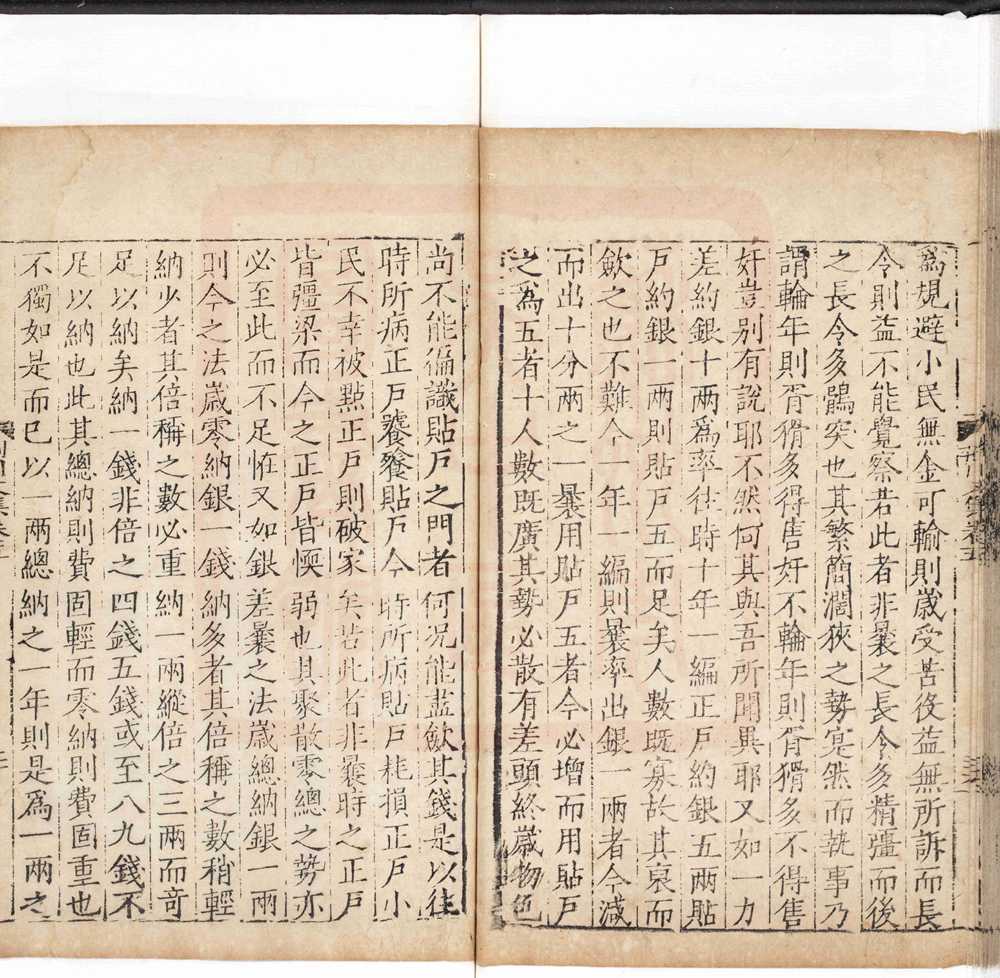 為規避小民無金可輸則歲受苦役益無所訴而長
令則益不能覺察若此者非曩之長令多精彊而後
之長令多鶻突也其繁簡濶狹之勢寔然而執事乃
謂輪年則胥猾多得售奸不輪年則胥猾多不得售
奸豈別有說耶不然何其與吾所聞異耶又如一力
差約銀十兩爲率往時十年一編正戶約銀五兩貼
戶約銀一兩則貼戶五而足矣人數既寡故其裒而
歛之也不難今一年一編則曩率出銀一兩者今減
而出十分兩之一曩用貼戶五者今必增而用貼戶
之為五者十人數既廣其勢必散有差頭終歲物色
尚不能徧識貼戶之門者何况能盡歛其錢是以往
時所病正戶饕餮貼戶今時所病貼戶耗損正戶小
民不幸被點正戶則破家矣若此者非曩時之正戶
皆彊梁而今之正戶皆愞弱也其聚散零總之勢亦
必至此而不足恠又如銀差曩之法歲總納銀一兩
則今之法歲零納銀一錢納多者其倍稱之數稍輕
納少者其倍稱之數必重納一兩縱倍之三兩而竒
足以納矣納一錢非倍之四錢五錢或至八九錢不
足以納也此其總納則費固輕而零納則費固重也
不獨如是而已以一兩總納之一年則是爲一兩之